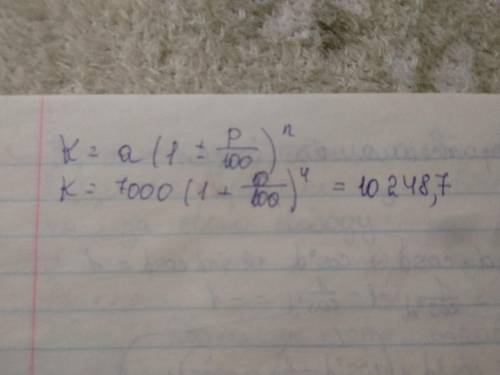 K = a (1 ± p/100)^n
K = 7000 (1 + 10/100)^4 = 10 248,7